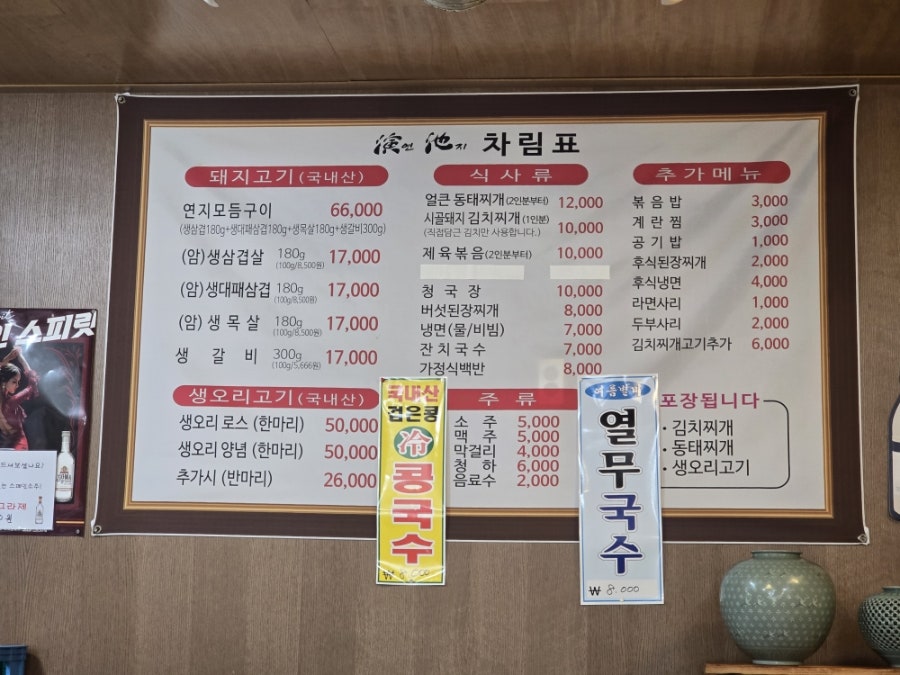 演연 池지 차림표
돼지고기(국내산)
연지모듬구이 66,000
(생삼겹180g+생대패삼겹180g+생목살180g+생갈비300g)
(암)생삼겹살 180g (100g/8,500원) 17,000
(암)생대패삼겹 180g (100g/8,500원) 17,000
(암)생목살 180g (100g/8,500원) 17,000
생갈비 300g (100g/5,666원) 17,000
생오리고기(국내산)
생오리 로스 (한마리) 50,000
생오리 양념 (한마리) 50,000
추가시 (반마리) 26,000
식사류
얼큰 동태찌개(2인분부터) 12,000
시골돼지 김치찌개(1인분) 10,000
(직접담근 김치만 사용합니다.)
제육볶음(2인분부터) 10,000
청국장 10,000
버섯된장찌개 8,000
냉면(물/비빔) 7,000
잔치국수 7,000
가정식백반 8,000
주류
소주 5,000
맥주 5,000
막걸리 4,000
청하 6,000
음료수 2,000
추가메뉴
볶음밥 3,000
계란찜 3,000
공기밥 1,000
후식된장찌개 2,000
후식냉면 4,000
라면사리 1,000
두부사리 2,000
김치찌개고기추가 6,000
포장됩니다
· 김치찌개
· 동태찌개
· 생오리고기
국내산
검은콩
冷
콩국수
₩ 8,000
여름별미
열무국수
₩ 8.000
스피릿